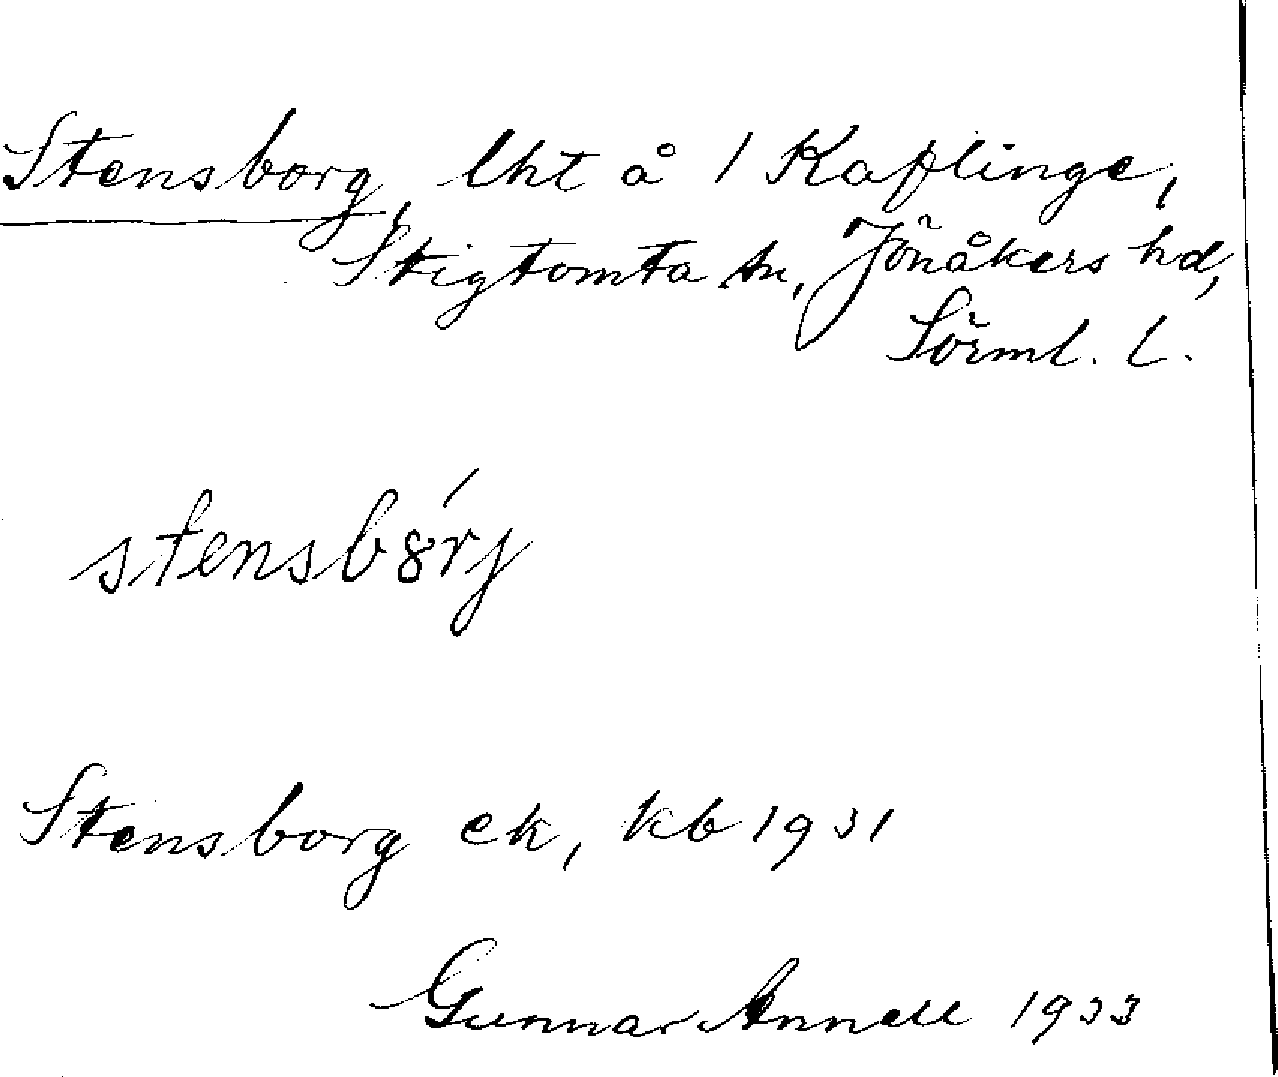 Stensborg, lht å 1 Kaflinge,
Stigtomta sn, Jönåkers hd,
Sörml. l.
stensbȣ́rj
Stensborg ek, kb 1931
Gunnar Annell 1933